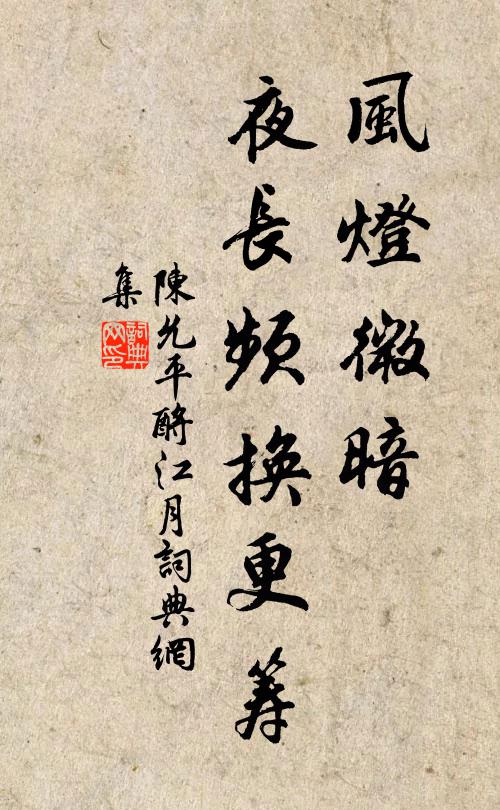 風燈微暗
夜長頻換更籌
陳允平酹江月詞典網
集
詞典
网印